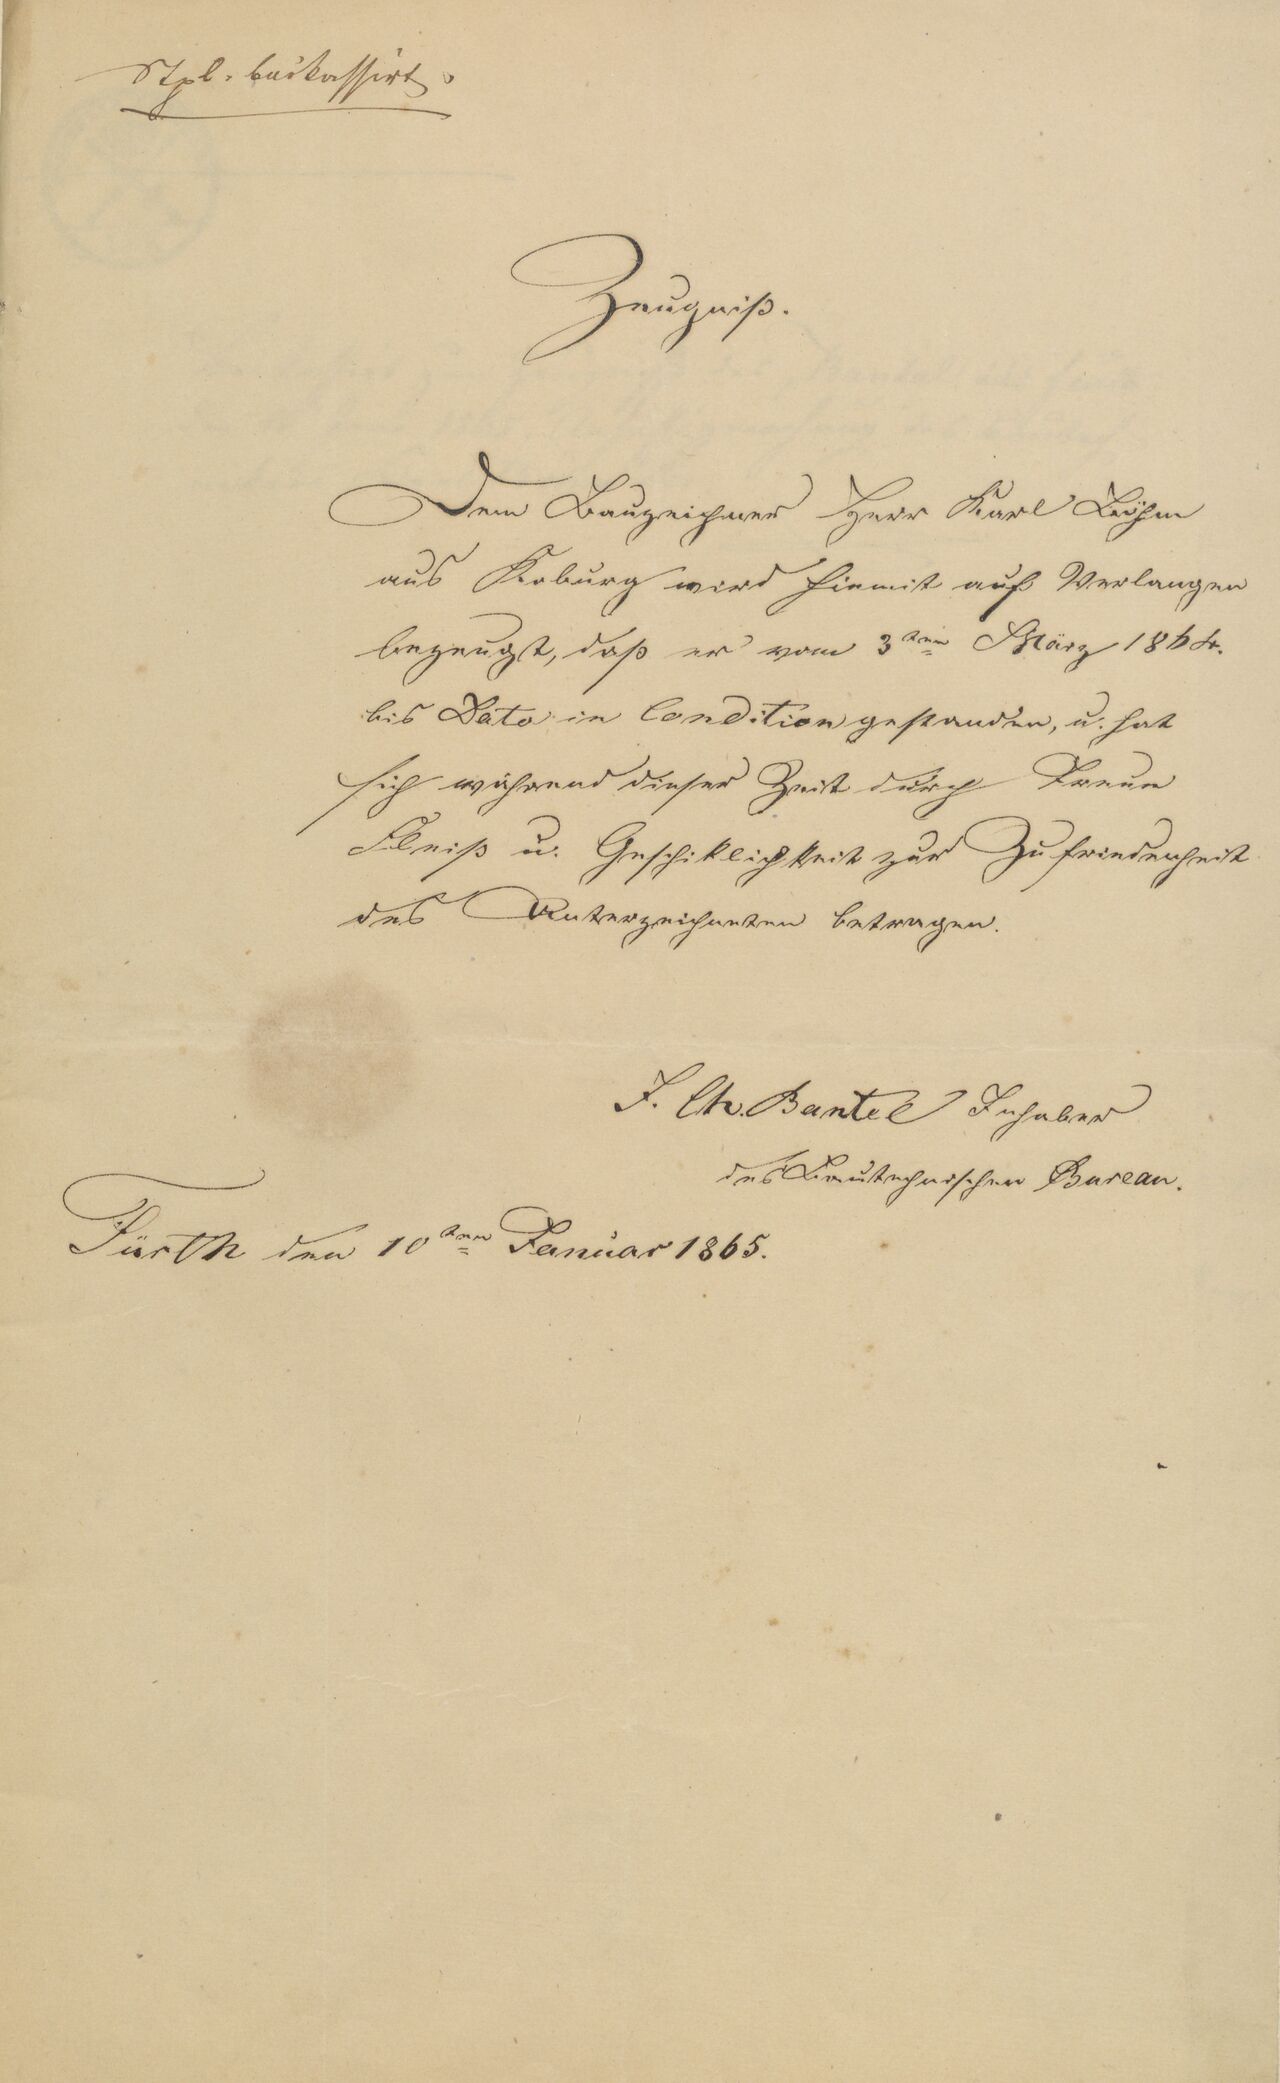 Stpl. einkassirt.
Zeugniß.
Dem Bauzeichner Herr Karl Böhm
aus Koburg wird hiemit auf Verlangen
bezeugt, daß er vom 3ten März 1864.
bis Dato in Condition gestanden, u. hat
sich während dieser Zeit durch Treue
Fleiß u. Geschiklichkeit zur Zufriedenheit
des Unterzeichneten betragen.
J. Ch. Bantel Inhaber
des Bautechnischen Bureau.
Fürth den 10ten Januar 1865.